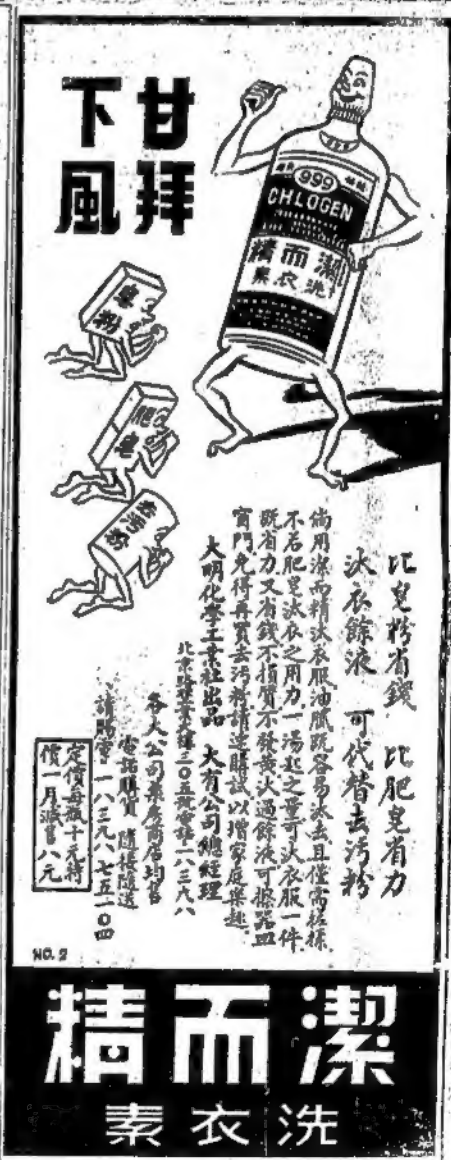 甘拜
下風
999
CHLOGEN
潔而精
洗衣素
皂粉
肥皂
去污粉
比皂粉省錢 比肥皂省力
汰衣餘液 可代替去污粉
倘用潔而精汰衣服油膩既容易汰去且僅需輕搓
不若肥皂汰衣之用力一湯匙之量可汰衣服一件
既省力又省錢不損質不發黃汰過餘液可擦器皿
窗門免得再買去污粉請速購試以增家庭樂趣
大明化學工業社出品 大有公司總經理
北京路墾業大樓三〇五號電話一八三九八
各大公司藥房商店均售
電話購貨 隨接隨送
請賜電 一八三九八 七五一〇四
定價每瓶十元特
價一月減售八元
NO. 2
潔而精
洗衣素